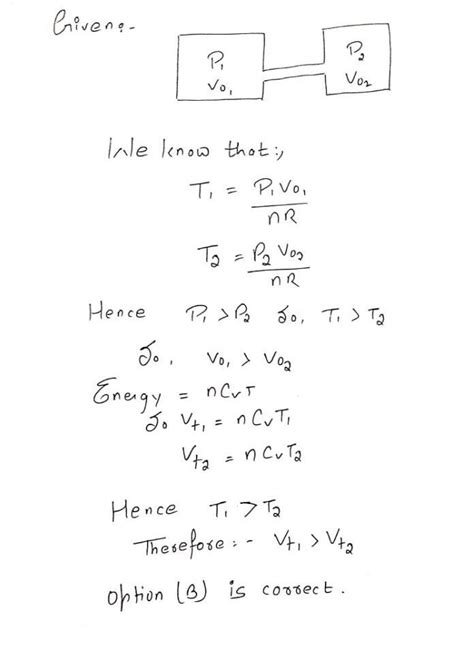 Given:-
P₁ P₂
V₀₁ V₀₂
We know that:,
T₁ = P₁V₀₁ / nR
T₂ = P₂ V₀₂ / nR
Hence P₁ > P₂ So, T₁ > T₂
So, V₀₁ > V₀₂
Energy = nCᵥT
So Vₜ₁ = nCᵥT₁
Vₜ₂ = nCᵥT₂
Hence T₁ > T₂
Therefore:- Vₜ₁ > Vₜ₂
option (B) is correct.